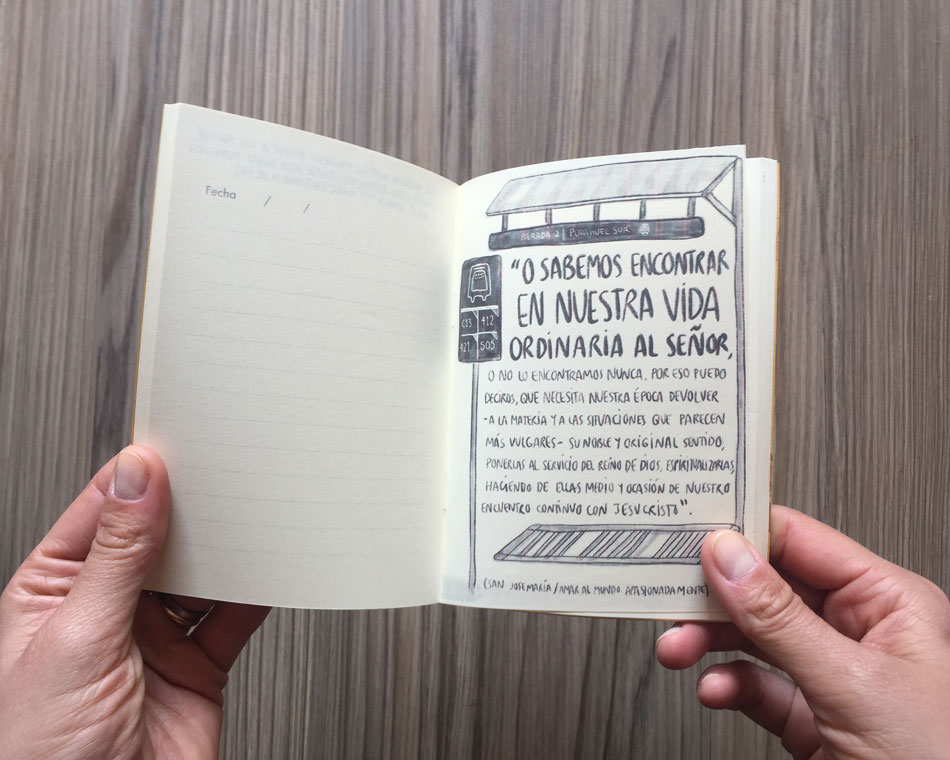 Fecha / /
PARADA 2 | PUDAHUEL SUR
C13 412
421 505
"O SABEMOS ENCONTRAR
EN NUESTRA VIDA
ORDINARIA AL SEÑOR,
O NO LO ENCONTRAMOS NUNCA. POR ESO PUEDO
DECIROS, QUE NECESITA NUESTRA ÉPOCA DEVOLVER
-A LA MATERIA Y A LAS SITUACIONES QUE PARECEN
MÁS VULGARES- SU NOBLE Y ORIGINAL SENTIDO,
PONERLAS AL SERVICIO DEL REINO DE DIOS, ESPIRITUALIZARLAS,
HACIENDO DE ELLAS MEDIO Y OCASIÓN DE NUESTRO
ENCUENTRO CONTINUO CON JESUCRISTO".
(SAN JOSEMARÍA / AMAR AL MUNDO APASIONADAMENTE)